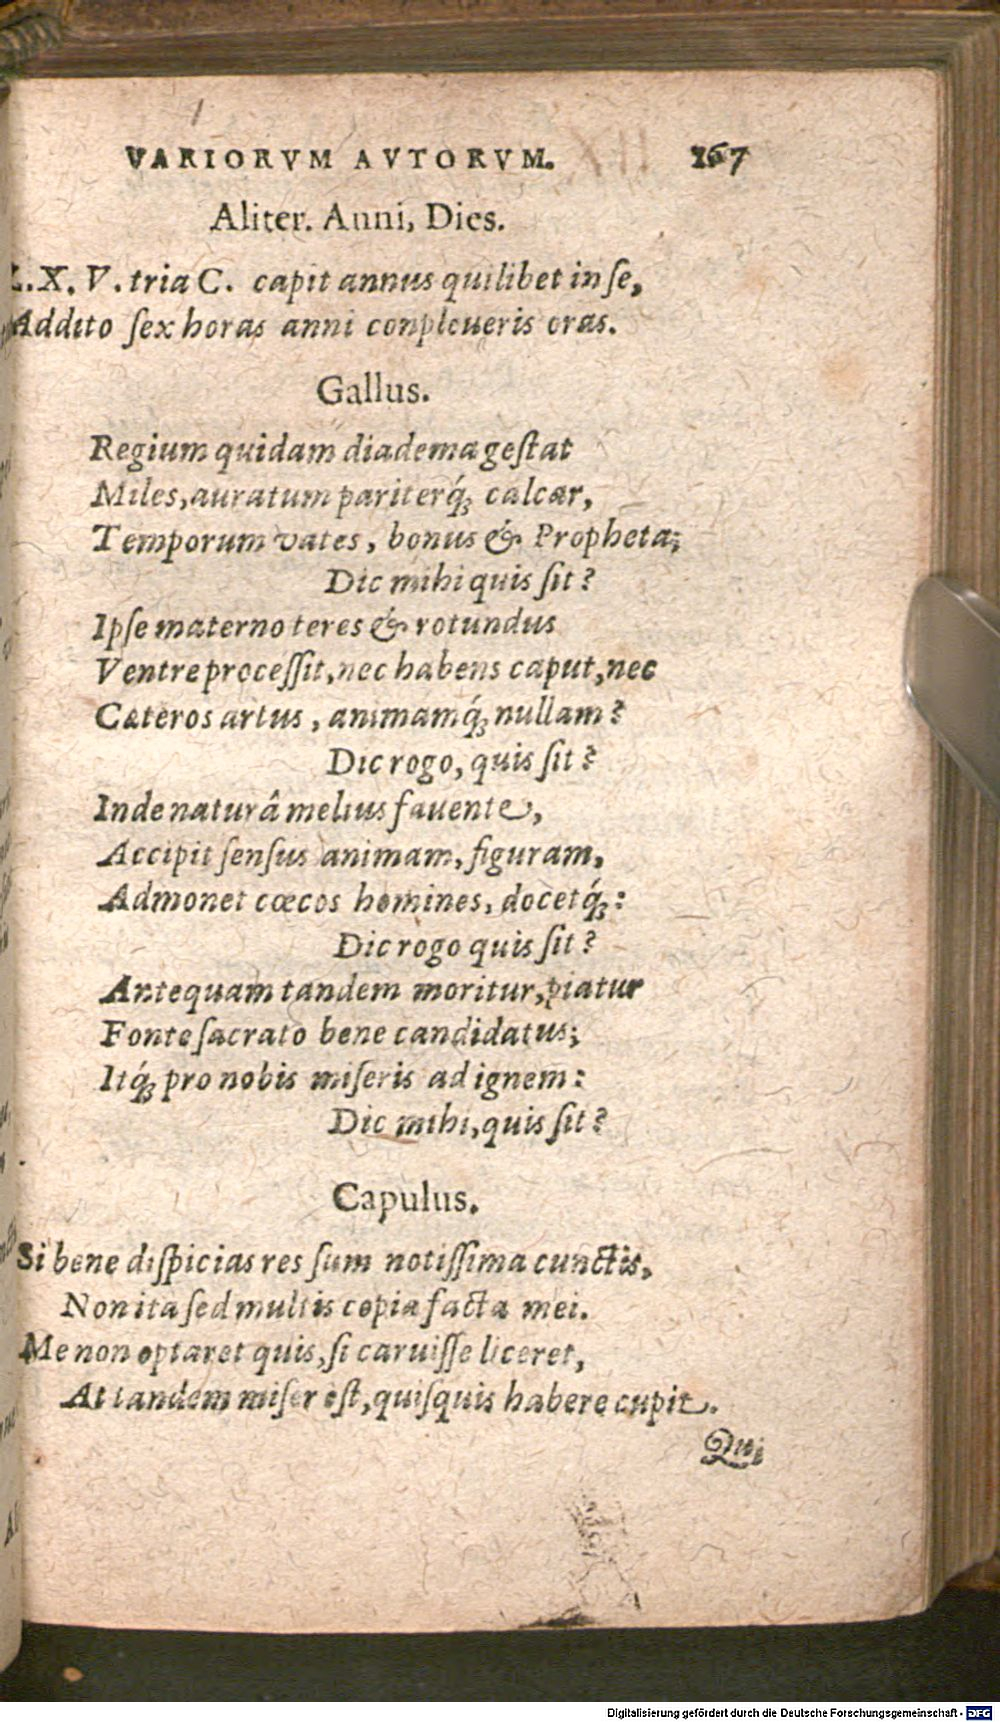 VARIORVM AVTORVM. 167
Aliter. Anni, Dies.
L. X. V. tria C. capit annus quilibet in ſe,
Addito ſex horas anni conpleueris oras.
Gallus.
Regium quidam diadema geſtat
Miles, auratum pariterq́; calcar,
Temporum vates, bonus & Propheta;
Dic mihi quis ſit?
Ipſe materno teres & rotundus
Ventre proceſſit, nec habens caput, nec
Cæteros artus, animamq́; nullam?
Dic rogo, quis ſit?
Inde naturâ melius fauente,
Accipit ſenſus animam, figuram,
Admonet cœcos homines, docetq́;:
Dic rogo quis ſit?
Antequam tandem moritur, piatur
Fonte ſacrato bene candidatus;
Itq́; pro nobis miſeris ad ignem:
Dic mihi, quis ſit?
Capulus.
Si bene diſpicias res ſum notiſſima cunctis,
Non ita ſed multis copia facta mei.
Me non optaret quis, ſi caruiſſe liceret,
At tandem miſer eſt, quiſquis habere cupit.
Qui
Digitalisierung gefördert durch die Deutsche Forschungsgemeinschaft - DFG